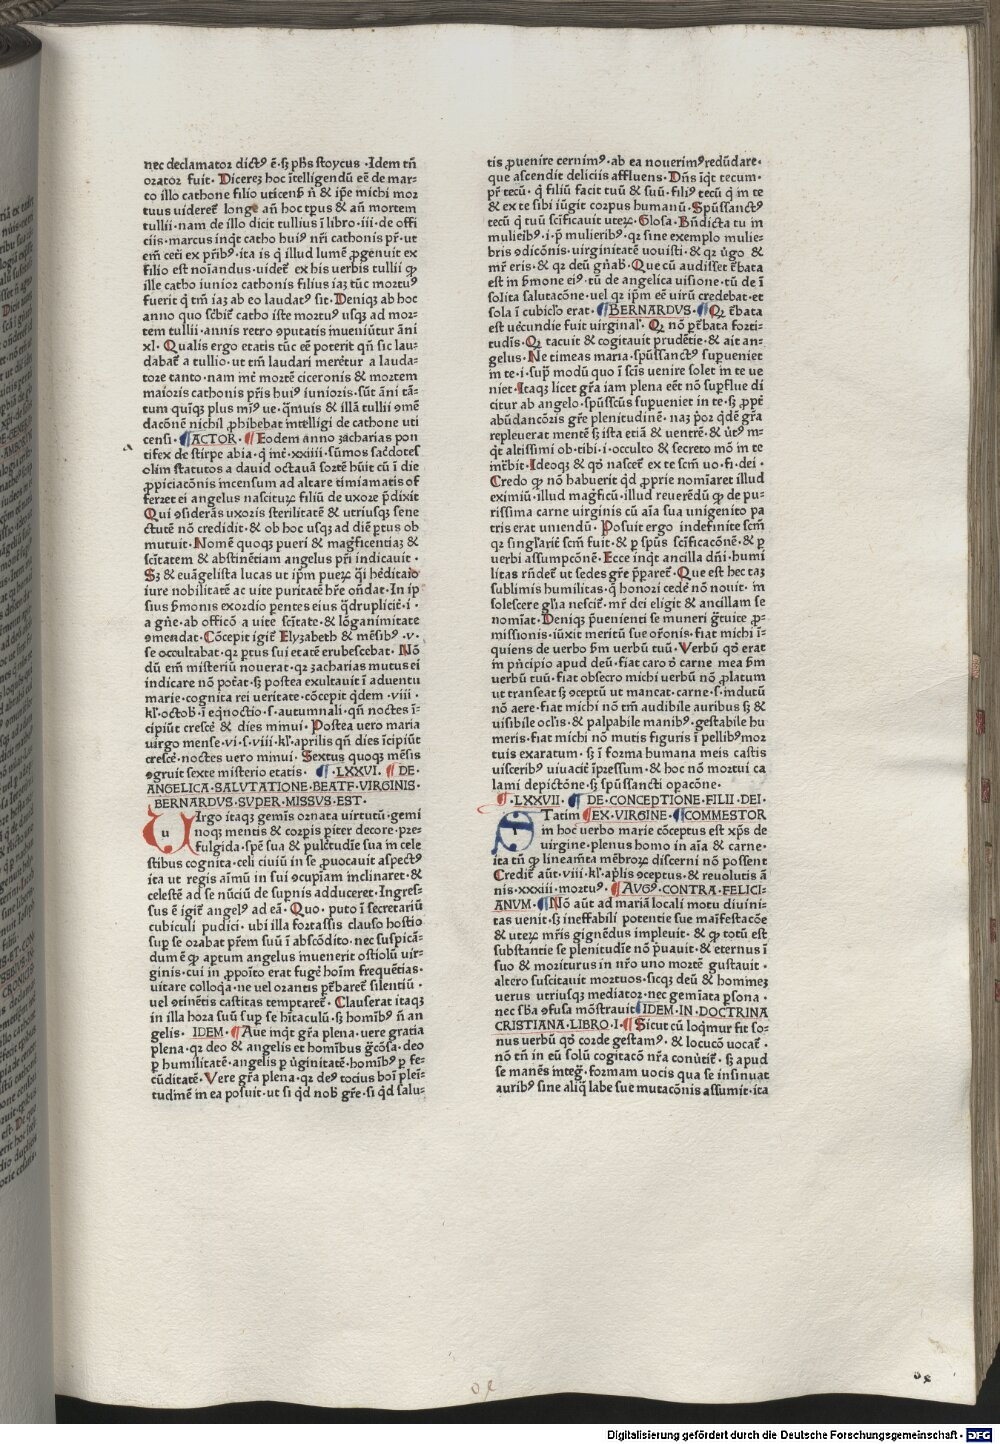 nec declamator dictꝰ ē· sꝫ phs stoycus · Idem tn̄
orator fuit· Dicerez hoc ītelligendū eē de mar-
co illo cathone filio uticens̄ n̄ & ip̄e michi mor
tuus uideret̄ longe añ hoc tp̄us & añ mortem
tullii· nam de illo dicit tullius ī libro· iii· de offi
ciis· marcus inqt̄ catho huiꝰ nr̄i cathonis pr̄· ut
em̄ ceti ex pr̄ibꝰ· ita is q̄ illud lumē ꝓgenuit ex
filio est noīandus· uidet̄ ex his uerbis tullii ꝙ
ille catho iunior cathonis filius iaz tūc mortuꝰ
fuerit q̄ tm̄ iaz ab eo laudatꝰ sit· Deniqꝫ ab hoc
anno quo scb̄it̄ catho iste mortuꝰ usqꝫ ad mor-
tem tullii· annis retro ꝯputatis inueniūtur āni
xl· Qualis ergo etatis tūc eē poterit qn̄ sic lau-
dabat̄ a tullio· ut tm̄ laudari meret̄ur a lauda-
tore tanto· nam int̄ mortē ciceronis & mortem
maioris cathonis pr̄is huiꝰ iunioris· sūt āni tā-
tum quīqꝫ plus minꝰ ue· q̄muis & illā tullii ꝯmē
dacōnē nichil ꝓhibebat intelligi de cathone uti
censi· ¶ACTOR· ¶Eodem anno zacharias pon
tifex de stirpe abia· q̄ int̄· xxiiii· sūmos sac̄dotes
olim statutos a dauid octauā sortē hūit cū ī die
ꝓpiciatōnis incensum ad altare timiamatis of
ferret ei angelus nasciturꝫ filiū de uxore p̄dixit
Qui ꝯsiderās uxoris sterilitatē & utriusqꝫ sene
ctutē nō credidit· & ob hoc usqꝫ ad diē ptus ob
mutuit· Nomē quoqꝫ pueri & maḡficentiaꝫ &
sc̄itatem & abstinētiam angelus pr̄i indicauit·
Sꝫ & euāgelista lucas ut ip̄m puerꝫ qī h̄editaio
iure nobilitatē ac uite puritatē hr̄e on̄dat· In ip̄
sius s̄monis exordio pentes eius q̄druplicit̄· i·
a gn̄e· ab officō a uite sc̄itate· & lōganimitate
ꝯmendat· Cōcepit igit̄ Elyzabeth & mēsibꝰ· v·
se occultabat· qꝫ ptus sui etatē erubescebat· Nō
dū em̄ misteriū nouerat· qꝫ zacharias mutus ei
indicare nō pot̄at· sꝫ postea exultauit ī aduentu
marie· cognita rei ueritate· cōcepit q̄dem· viii·
kl̄· octob̄· ī eq̄noctio· s· autumnali· qn̄ noctes ī-
cipiūt cresc̄e & dies minui· Postea uero maria
uirgo mense· vi· s· viii· kl̄· aprilis qn̄ dies īcipiūt
cresc̄e· noctes uero minui· Sextus quoqꝫ mēsis
ꝯgruit sexte misterio etatis· ¶·LXXVI· ¶DE·
ANGELICA·SALVTATIONE·BEATE·VIRGINIS·
BERNARDVS·SVPER·MISSVS·EST·
Uirgo itaqꝫ gemīs ornata uirtutū· gemi
noqꝫ mentis & corpis piter decore· pre-
fulgida· spē sua & pulct̄udīe sua in cele
stibus cognita· celi ciuiū in se ꝓuocauit aspectꝰ
ita ut regis aīmū in sui ꝯcupiam inclinaret· &
celestē ad se nūciū de supnis adduceret· Ingres-
sus ē igit̄ angelꝰ ad eā· Quo· puto ī secretariū
cubiculi pudici· ubi illa fortassis clauso hostio
sup se orabat pr̄em suū ī abscōdito· nec suspicā-
dum ē ꝙ aptum angelus inuenerit ostiolū uir-
ginis· cui in ꝓpoīto erat fuḡe hoīm frequētias·
uitare colloqa· ne uel orantis pt̄baret̄ silentiū·
uel ꝯtinētis castitas temptaret̄· Clauserat itaqꝫ
in illa hora suū sup se hītaculū· sꝫ homībꝰ n̄ an
gelis· IDEM·¶Aue inqt̄ gr̄a plena· uere gratia
plena· qꝫ deo & angelis et homībus gc̄osa· deo
p humilitatē· angelis p ūginitatē· homībꝰ p fe-
cūditatē· Vere gr̄a plena· qꝫ deꝰ tocius boī pleī-
tudinē in ea posuit· ut si qd nob̄ gr̄e· si qd salu-
tis ꝓuenire cernimꝰ· ab ea nouerimꝰ redūdare·
que ascendit deliciis affluens· Dn̄s īqt tecum·
pr̄ tecū· q̄ filiū facit tuū & suū· filiꝰ tecū q̄ in te
& ex te sibi iūgit corpus humanū· Spūssanctꝰ
tecū q̄ tuū sc̄ificauit uterꝫ· Glosa· Bn̄dicta tu in
mulieībꝰ· i· p̄ mulieribꝰ· qꝫ sine exemplo mulie-
bris ꝯdicōnis· virginitatē uouisti· & qꝫ ūgo &
mr̄ eris· & qꝫ deū gn̄ab̄· Que cū audisset t̄bata
est in s̄mone eiꝰ· tū de angelica uisione· tū de ī
solita salutacōne· uel qꝫ ip̄m eē uirū credebat· et
sola ī cubic̄lo erat· ¶BERNARDVS· ¶Qꝫ t̄bata
est uēcundie fuit uirginal̄· Qꝫ nō pt̄bata forti-
tudīs· Qꝫ tacuit & cogitauit prudētie· & ait an-
gelus· Ne timeas maria· spūssanctꝰ supueniet
in te· i· sup̄ modū quo ī sc̄is uenire solet in te ue
niet· Itaqꝫ licet gr̄a iam plena eēt nō sup̄flue di
citur ab angelo· spūssc̄us supueniet in te· sꝫ ꝓpt̄
abūdancōris gr̄e plenitudinē· naꝫ p̄or q̄dē gr̄a
repleuerat mentē sꝫ ista etiā & uentrē· & ūtꝰ m̄-
qt̄ altissimi ob· tibi· i· occulto & secreto mō in te
int̄bit· Ideoqꝫ & qd̄ nascet̄ ex te sc̄m uo· fi· dei·
Credo ꝙ nō habuerit qd̄ ꝓprie nomīaret illud
eximiū· illud maḡficū· illud reuerēdū ꝙ de pu-
rissima carne uirginis cū aīa sua unigenito pa
tris erat uniendū· Posuit ergo indefinite sc̄m̄
qꝫ singl̄arit̄ sc̄m fuit· & p spūs sc̄ificacōnē· & p
uerbi assumpcōnē· Ecce inqt̄ ancilla dn̄i· humi
litas rn̄det̄ ut sedes gr̄e ppareī· Que est hec taꝫ
sublimis humilitas· q̄ honori cedē nō nouit· in
solescere glīa nescit̄· mr̄ dei eligit̄ & ancillam se
nomīat· Deniqꝫ p̄uenienti se muneri gt̄uite ꝓ-
missionis· iūxit meritū sue or̄onis· fiat michi ī-
quiens de uerbo s̄m uerbū tuū· Verbū qd̄ erat
in pn̄cipio apud deū· fiat caro d̄ carne mea s̄m
uerbū tuū· fiat obsecro michi uerbū nō ꝓlatum
ut transeat sꝫ ꝯceptū ut maneat· carne· s· indutū
nō aere· fiat michi nō tm̄ audibile auribus sꝫ &
uisibile ocl̄is· & palpabile manibꝰ· gestabile hu
meris· fiat michi nō mutis figuris ī pellibꝰ mor
tuis exaratum· sꝫ ī forma humana meis castis
uisceribꝰ uiuacit̄ īpressum· & hoc nō mortui ca
lami depictōne· sꝫ spūssancti opacōne·
¶·LXXVII·¶DE·CONCEPTIONE·FILII·DEI·
Tatim ¶EX·VIRGINE·¶COMMESTOR
in hoc uerbo marie cōceptus est xp̄s de
uirgine· plenus homo in aīa & carne·
ita tn̄ ꝙ lineam̄ta mēbroꝫ discerni nō possent
Credit̄ aūt· viii· kl̄· ap̄lis ꝯceptus· & reuolutis ā
nis· xxxiii· mortuꝰ· ¶AVGꝰ·CONTRA·FELICI-
ANVM·¶Nō aūt ad mariā locali motu diuīni-
tas uenit· sꝫ ineffabili potentie sue maīfestacōe
& uterꝫ mr̄is gignēdus impleuit· & ꝙ totū est
substantie se plenitudīe nō p̄uauit· & eternus ī
suo & moriturus in nr̄o uno mortē gustauit·
altero suscitauit mortuos· sicqꝫ deū & hominez
uerus utriusqꝫ mediator· nec gemīata psona·
nec sb̄a ꝯfusa mōstrauit ¶IDEM·IN·DOCTRINA
CRISTIANA·LIBRO·I·¶Sicut cū loqmur fit so-
nus uerbū qd̄ corde gestamꝰ· & locucō uocat̄·
nō tn̄ in eū solū cogitacō nr̄a conūtit̄· sꝫ apud
se manēs inteḡ· formam uocis qua se insinuat
auribꝰ sine aliq̄ labe sue mutacōnis assumit· ita
Digitalisierung gefördert durch die Deutsche Forschungsgemeinschaft · DFG